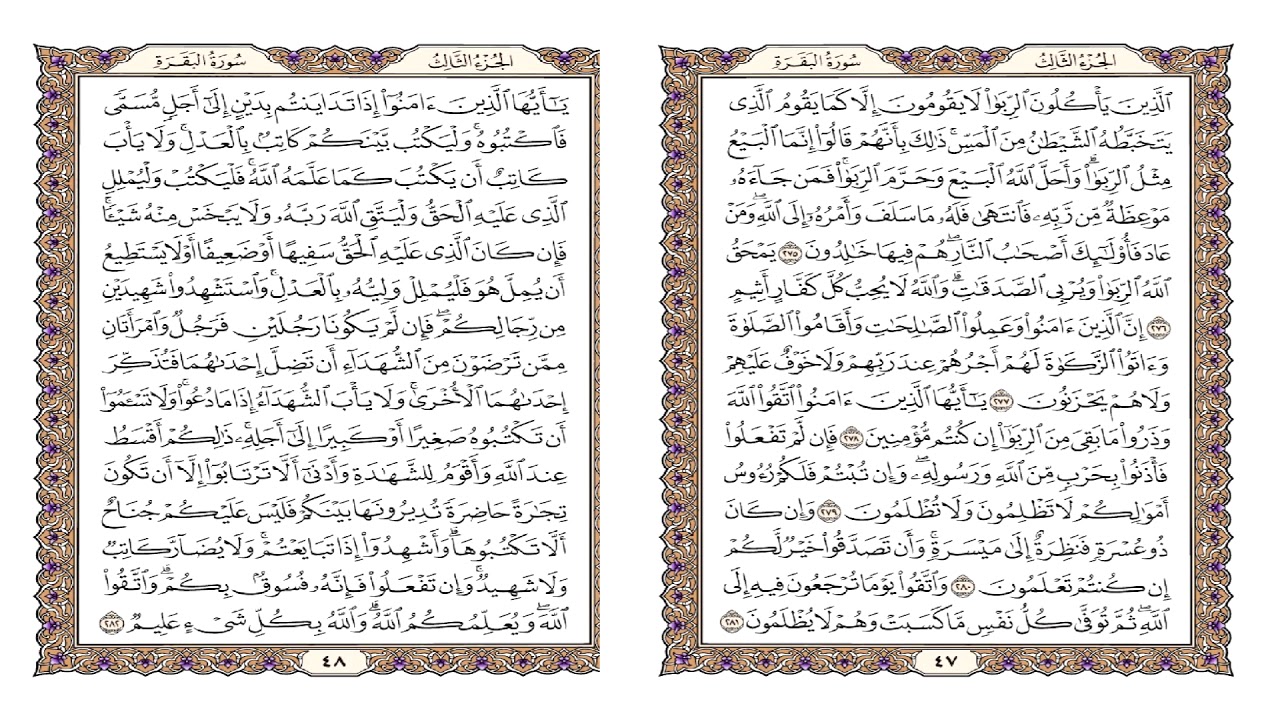 الجزء الثالث
سورة البقرة
ٱلَّذِينَ يَأۡكُلُونَ ٱلرِّبَوٰاْ لَا يَقُومُونَ إِلَّا كَمَا يَقُومُ ٱلَّذِي
يَتَخَبَّطُهُ ٱلشَّيۡطَٰنُ مِنَ ٱلۡمَسِّۚ ذَٰلِكَ بِأَنَّهُمۡ قَالُوٓاْ إِنَّمَا ٱلۡبَيۡعُ
مِثۡلُ ٱلرِّبَوٰاْۗ وَأَحَلَّ ٱللَّهُ ٱلۡبَيۡعَ وَحَرَّمَ ٱلرِّبَوٰاْۚ فَمَن جَآءَهُۥ
مَوۡعِظَةٞ مِّن رَّبِّهِۦ فَٱنتَهَىٰ فَلَهُۥ مَا سَلَفَ وَأَمۡرُهُۥٓ إِلَى ٱللَّهِۖ وَمَنۡ
عَادَ فَأُوْلَٰٓئِكَ أَصۡحَٰبُ ٱلنَّارِۖ هُمۡ فِيهَا خَٰلِدُونَ ٢٧٥ يَمۡحَقُ
ٱللَّهُ ٱلرِّبَوٰاْ وَيُرۡبِي ٱلصَّدَقَٰتِۗ وَٱللَّهُ لَا يُحِبُّ كُلَّ كَفَّارٍ أَثِيمٍ
٢٧٦ إِنَّ ٱلَّذِينَ ءَامَنُواْ وَعَمِلُواْ ٱلصَّٰلِحَٰتِ وَأَقَامُواْ ٱلصَّلَوٰةَ
وَءَاتَوُاْ ٱلزَّكَوٰةَ لَهُمۡ أَجۡرُهُمۡ عِندَ رَبِّهِمۡ وَلَا خَوۡفٌ عَلَيۡهِمۡ
وَلَا هُمۡ يَحۡزَنُونَ ٢٧٧ يَٰٓأَيُّهَا ٱلَّذِينَ ءَامَنُواْ ٱتَّقُواْ ٱللَّهَ
وَذَرُواْ مَا بَقِيَ مِنَ ٱلرِّبَوٰٓاْ إِن كُنتُم مُّؤۡمِنِينَ ٢٧٨ فَإِن لَّمۡ تَفۡعَلُواْ
فَأۡذَنُواْ بِحَرۡبٖ مِّنَ ٱللَّهِ وَرَسُولِهِۦۖ وَإِن تُبۡتُمۡ فَلَكُمۡ رُءُوسُ
أَمۡوَٰلِكُمۡ لَا تَظۡلِمُونَ وَلَا تُظۡلَمُونَ ٢٧٩ وَإِن كَانَ
ذُو عُسۡرَةٖ فَنَظِرَةٌ إِلَىٰ مَيۡسَرَةٖۚ وَأَن تَصَدَّقُواْ خَيۡرٞ لَّكُمۡ
إِن كُنتُمۡ تَعۡلَمُونَ ٢٨٠ وَٱتَّقُواْ يَوۡمٗا تُرۡجَعُونَ فِيهِ إِلَى
ٱللَّهِۖ ثُمَّ تُوَفَّىٰ كُلُّ نَفۡسٖ مَّا كَسَبَتۡ وَهُمۡ لَا يُظۡلَمُونَ ٢٨١
٤٧
الجزء الثالث
سورة البقرة
يَٰٓأَيُّهَا ٱلَّذِينَ ءَامَنُوٓاْ إِذَا تَدَايَنتُم بِدَيۡنٍ إِلَىٰٓ أَجَلٖ مُّسَمّٗى
فَٱكۡتُبُوهُۚ وَلۡيَكۡتُب بَّيۡنَكُمۡ كَاتِبُۢ بِٱلۡعَدۡلِۚ وَلَا يَأۡبَ
كَاتِبٌ أَن يَكۡتُبَ كَمَا عَلَّمَهُ ٱللَّهُۚ فَلۡيَكۡتُبۡ وَلۡيُمۡلِلِ
ٱلَّذِي عَلَيۡهِ ٱلۡحَقُّ وَلۡيَتَّقِ ٱللَّهَ رَبَّهُۥ وَلَا يَبۡخَسۡ مِنۡهُ شَيۡـٔٗاۚ
فَإِن كَانَ ٱلَّذِي عَلَيۡهِ ٱلۡحَقُّ سَفِيهًا أَوۡ ضَعِيفًا أَوۡ لَا يَسۡتَطِيعُ
أَن يُمِلَّ هُوَ فَلۡيُمۡلِلۡ وَلِيُّهُۥ بِٱلۡعَدۡلِۚ وَٱسۡتَشۡهِدُواْ شَهِيدَيۡنِ
مِن رِّجَالِكُمۡۖ فَإِن لَّمۡ يَكُونَا رَجُلَيۡنِ فَرَجُلٞ وَٱمۡرَأَتَانِ
مِمَّن تَرۡضَوۡنَ مِنَ ٱلشُّهَدَآءِ أَن تَضِلَّ إِحۡدَىٰهُمَا فَتُذَكِّرَ
إِحۡدَىٰهُمَا ٱلۡأُخۡرَىٰۚ وَلَا يَأۡبَ ٱلشُّهَدَآءُ إِذَا مَا دُعُواْۚ وَلَا تَسۡـَٔمُوٓاْ
أَن تَكۡتُبُوهُ صَغِيرًا أَوۡ كَبِيرًا إِلَىٰٓ أَجَلِهِۦۚ ذَٰلِكُمۡ أَقۡسَطُ
عِندَ ٱللَّهِ وَأَقۡوَمُ لِلشَّهَٰدَةِ وَأَدۡنَىٰٓ أَلَّا تَرۡتَابُوٓاْ إِلَّآ أَن تَكُونَ
تِجَٰرَةً حَاضِرَةٗ تُدِيرُونَهَا بَيۡنَكُمۡ فَلَيۡسَ عَلَيۡكُمۡ جُنَاحٌ
أَلَّا تَكۡتُبُوهَاۗ وَأَشۡهِدُوٓاْ إِذَا تَبَايَعۡتُمۡۚ وَلَا يُضَآرَّ كَاتِبٞ
وَلَا شَهِيدٞۚ وَإِن تَفۡعَلُواْ فَإِنَّهُۥ فُسُوقُۢ بِكُمۡۗ وَٱتَّقُواْ
ٱللَّهَۖ وَيُعَلِّمُكُمُ ٱللَّهُۗ وَٱللَّهُ بِكُلِّ شَيۡءٍ عَلِيمٞ ٢٨٢
٤٨